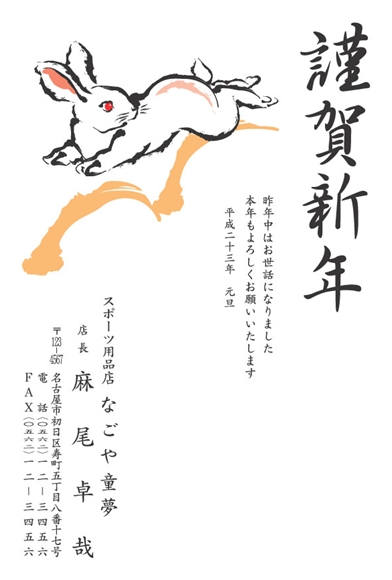 謹賀新年
昨年中はお世話になりました
本年もよろしくお願いいたします
平成二十三年　元旦
スポーツ用品店 なごや童夢
店長 麻尾卓哉
〒123-4567
名古屋市初日区寿町五丁目八番十七号
電話(〇五六二)一二―三四五六
FAX(〇五六二)一二―三四五六